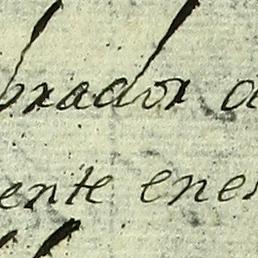 brador d
ente enes